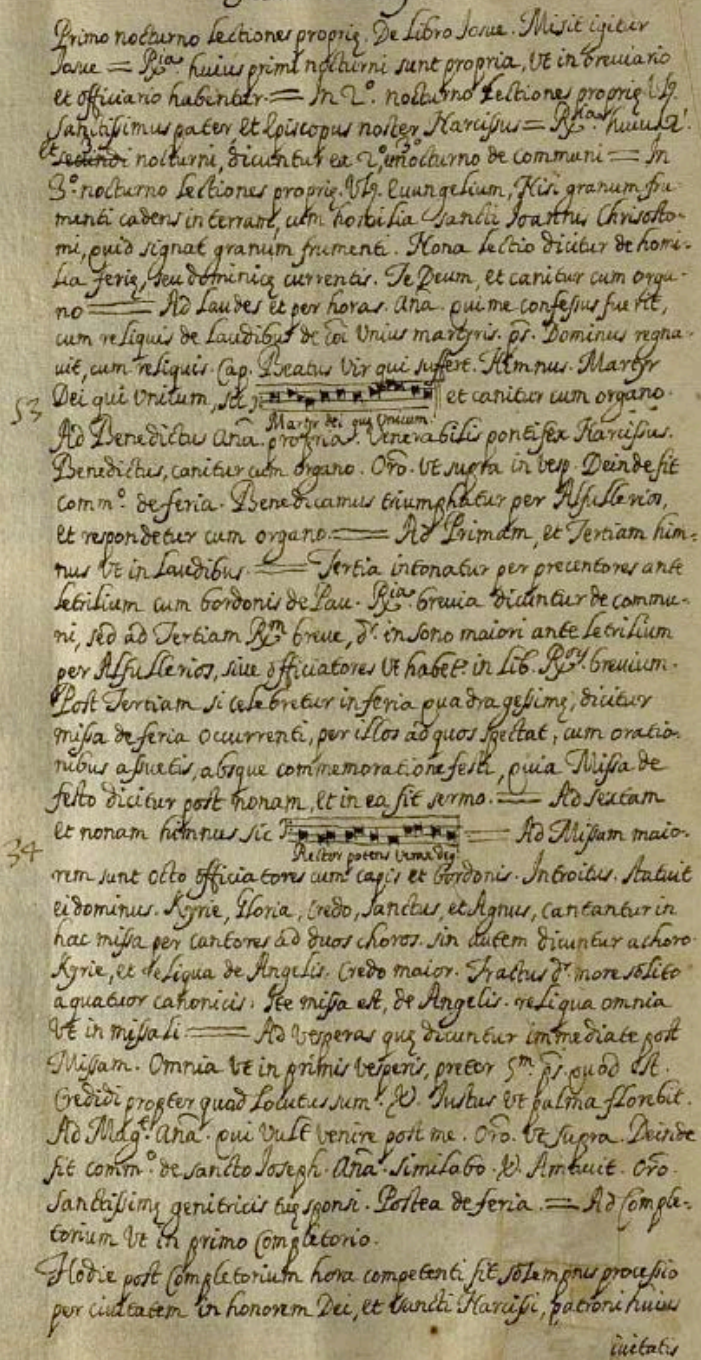 Primo nocturno Lectiones proprię. De Libro Josue. Misit igitur
Josue = R͡ia. huius primi nocturni sunt propria, Ut in breviario
et officiario habentur. = In 2º. nocturno Lectiones proprię Uʒ.
Sanctissimus pater et Episcopus noster Narcissus = R͡ia. huius 2i.
et 3i nocturni, dicuntur ex 2º, nocturno de communi = In
3º. nocturno Lectiones proprię. Uʒ. Euangelium, Nisi granum fru-
menti cadens in terram, cum homilia Sancti Joannis Chrisosto-
mi, quid signat granum frumenti. Nona lectio dicitur de homi-
lia ferię, seu dominicę currentis. Te Deum, et canitur cum orga-
no = Ad Laudes et per horas. Aña. qui me confessus fuerit,
cum reliquis de Laudibus de cõi Unius martyris. ps. Dominus regna-
uit, cum reliquis. Cap. Beatus Vir qui suffert. Himnus. Martyr
53 Dei qui Unicum, sic et canitur cum organo.
Martyr dei qui Unicum.
Ad Benedictus aña. propria. Venerabilis pontifex Narcissus.
Benedictus, canitur cum organo. Orº. Ut supra in vesp. Deinde fit
comm.º de feria. Benedicamus triumphatur per Alfullerios,
et respondetur cum organo. = Ad Primam, et Tertiam him-
nus Ut in Laudibus. = Tertia intonatur per precentores ante
letrilium cum bordonis de Pau. R͡ia. brevia dicuntur de commu-
ni, sed ad Tertiam R͡m breve, dr. in sono maiori ante letrilium
per Alfullerios, sive officiatores Ut habetr. in lib. R͡ry. brevium.
Post Tertiam si celebretur in feria quadragessimę, dicitur
missa de feria occurrenti, per illos ad quos spectat, cum oratio-
nibus assuetis, absque commemoratione festi, quia Missa de
festo dicitur post nonam, et in ea fit sermo. = Ad Sextam
et nonam himnus sic = Ad Missam maio-
34 Rector potens Verax deꝰ
rem sunt octo officiatores cum capis et bordonis. Introitus. Statuit
ei dominus. Kyrie, Gloria, Credo, Sanctus, et Agnus, cantantur in
hac missa per cantores ad duos choros. sin autem dicuntur a choro
Kyrie, et reliqua de Angelis. Credo maior. Tractus dr. more solito
a quatuor canonicis. Ite missa est, de Angelis. reliqua omnia
Ut in missali = Ad vesperas quę dicuntur immediate post
Missam. Omnia Ut in primis vesperis, preter 5m. ps. quod est.
Credidi propter quod Locutus sum. ℣. Justus Ut palma florebit.
Ad Mag.t Aña. qui Vult venire post me. Orº. Ut supra. Deinde
fit comm.º de sancto Joseph. Aña. similabo. ℣. Amavit. Orº.
Sanctissimę genitricis tuę sponsi. Postea de feria. = Ad Comple-
torium Ut in primo Completorio.
Hodie post Completorium hora competenti fit solempnis processio
per civitatem in honorem Dei, et Sancti Narcissi, patroni huius
civitatis